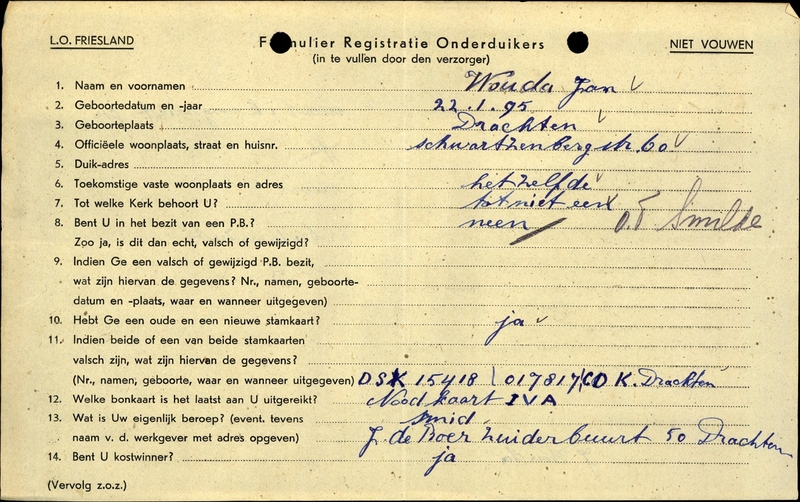 L.O. FRIESLAND
Formulier Registratie Onderduikers
NIET VOUWEN
(in te vullen door den verzorger)
1. Naam en voornamen Wouda Jan
2. Geboortedatum en -jaar 22.1.95
3. Geboorteplaats Drachten
4. Officiëele woonplaats, straat en huisnr. schwartzenbergstr. 60
5. Duik-adres
6. Toekomstige vaste woonplaats en adres hetzelfde
7. Tot welke Kerk behoort U? tot niet een
8. Bent U in het bezit van een P.B.? neen Smilde
Zoo ja, is dit dan echt, valsch of gewijzigd?
9. Indien Ge een valsch of gewijzigd P.B. bezit,
wat zijn hiervan de gegevens? Nr., namen, geboorte-
datum en -plaats, waar en wanneer uitgegeven)
10. Hebt Ge een oude en een nieuwe stamkaart? ja
11. Indien beide of een van beide stamkaarten
valsch zijn, wat zijn hiervan de gegevens?
(Nr., namen, geboorte, waar en wanneer uitgegeven) DSK 15418 017817 K. Drachten
12. Welke bonkaart is het laatst aan U uitgereikt? Noodkaart IVA
13. Wat is Uw eigenlijk beroep? (event. tevens smid
naam v. d. werkgever met adres opgeven) J. de Boer Zuiderbuurt 50 Drachten
14. Bent U kostwinner? ja
(Vervolg z.o.z.)